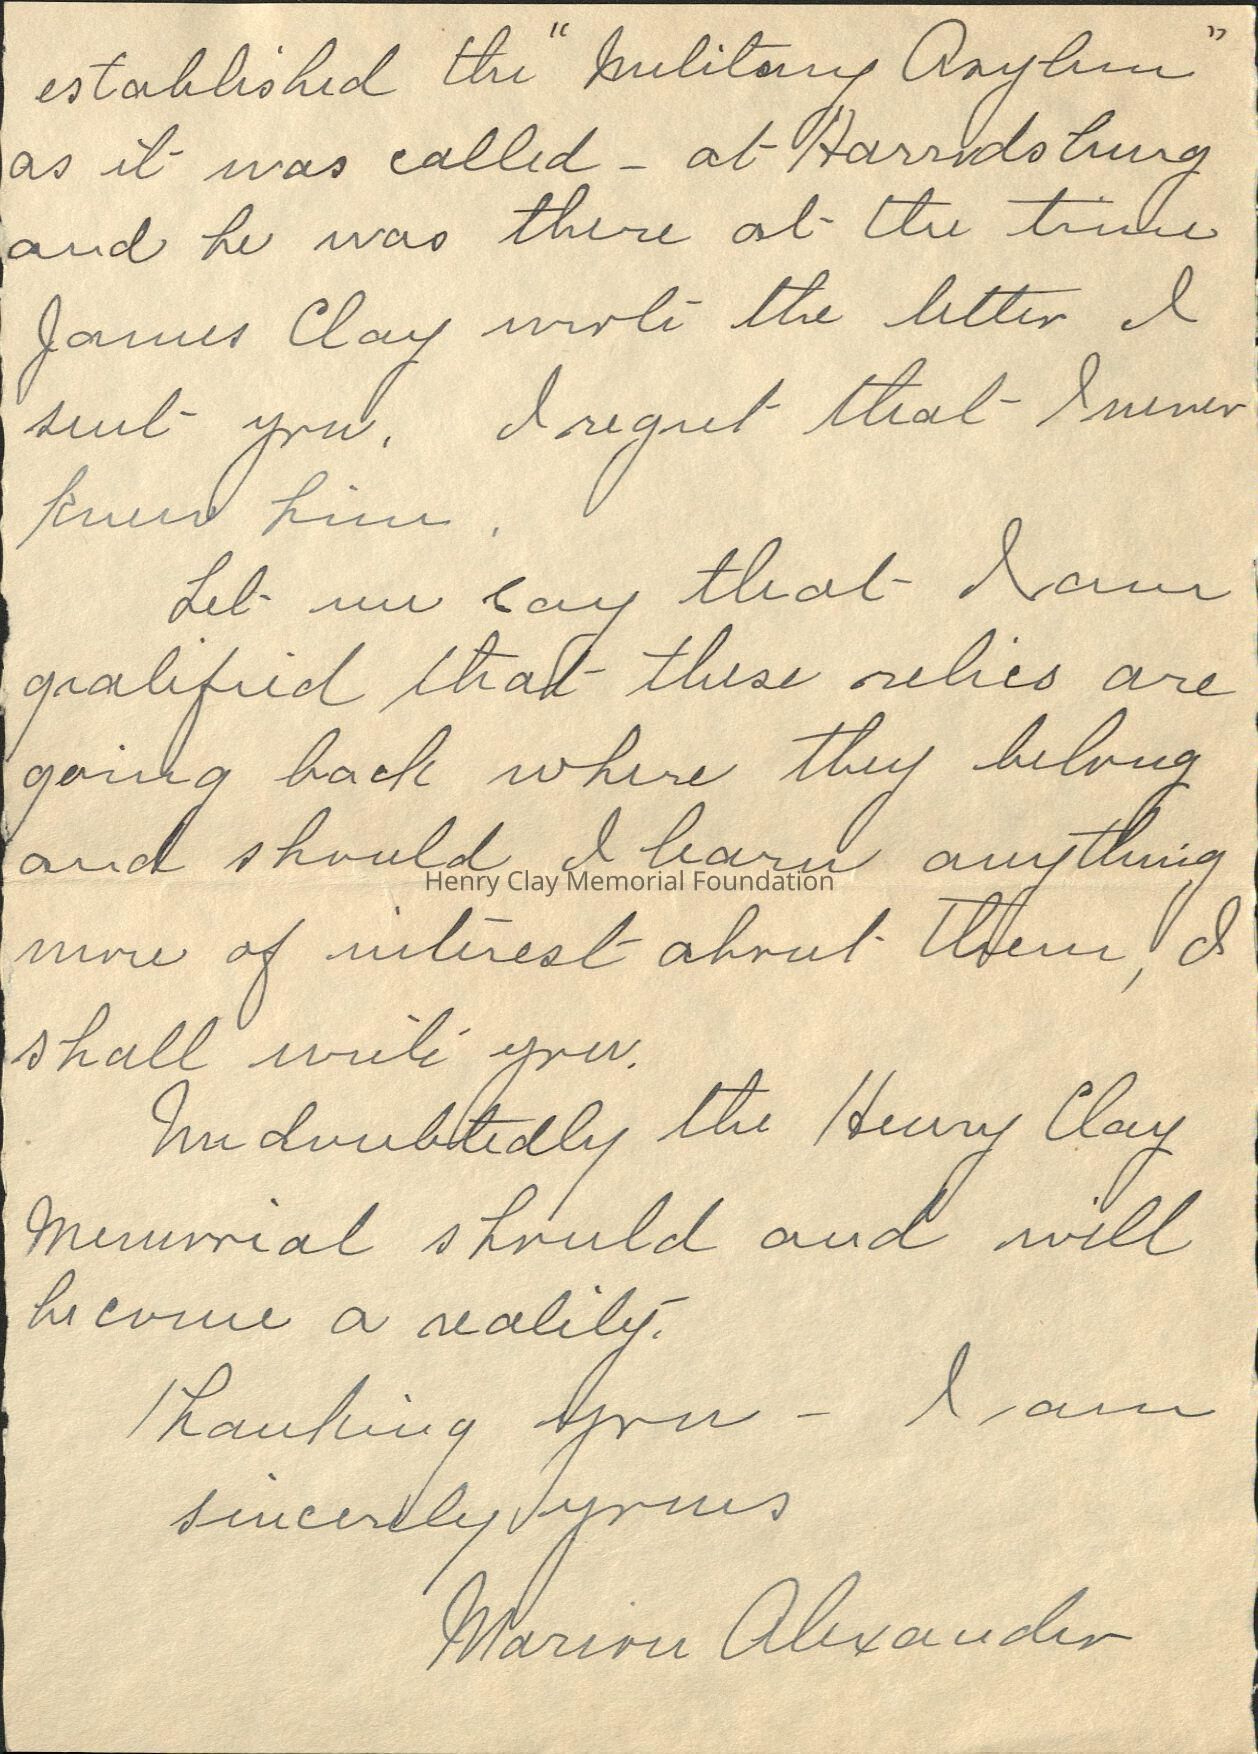 established the "Military Asylum"
as it was called - at Harrodsburg
and he was there at the time
James Clay wrote the letter I
sent you. I regret that I never
knew him.
Let me say that I am
gratified that these relics are
going back where they belong
and should I learn anything
Henry Clay Memorial Foundation
more of interest about them, I
shall write you.
Undoubtedly the Henry Clay
Memorial should and will
become a reality.
Thanking you - I am
sincerely yours
Marion Alexander